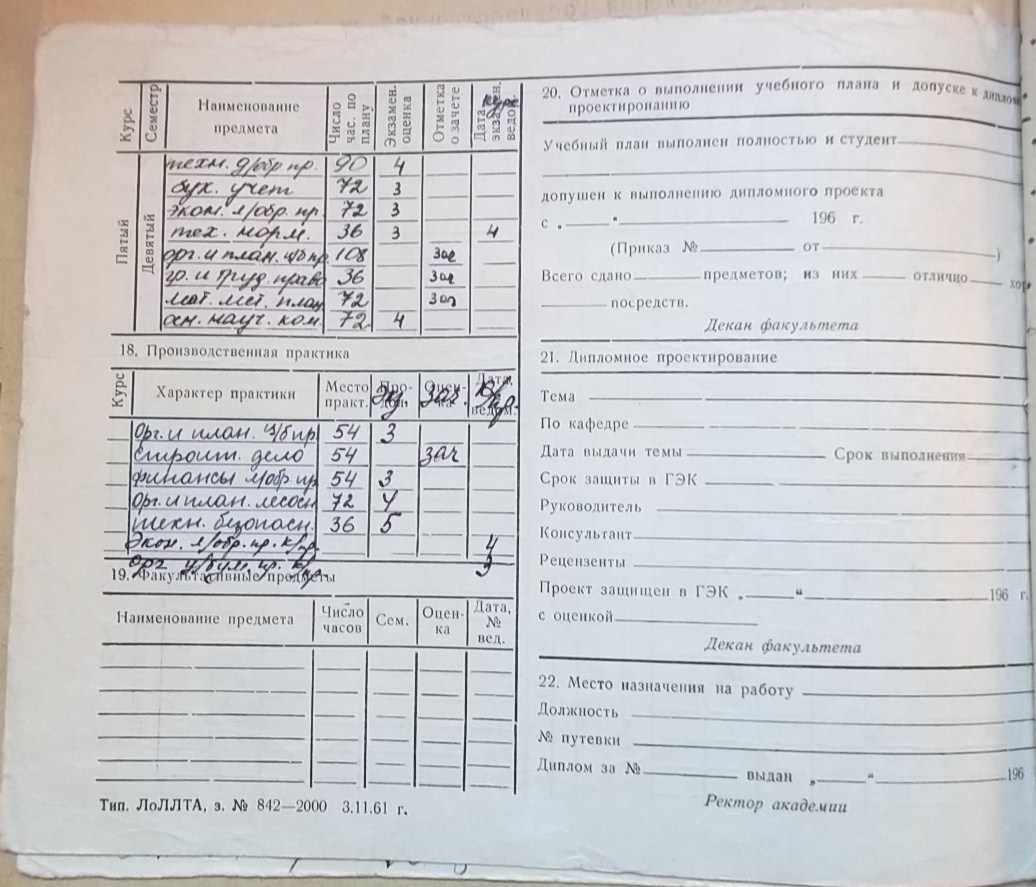 Курс Семестр Наименование предмета Число час. по плану Экзамен. оценка Отметка о зачете Дата экзамен. ведо. курс.
Пятый Девятый
техн. д/обр пр. 90 4
бух. учет 72 3
экон. л/обр. пр. 72 3
тех. норм. 36 3 4
орг. и план. ц/б пр 108 зач
и труд. право 36 зач
мат. мет. план 72 зач
осн. науч. ком. 72 4
18. Производственная практика
Курс Характер практики Место практ. Про-дол. Оцен-ка Дата, ведом. Экз. зач. К/пр.
Орг. и план. ц/б пр 54 3
строит. дело 54 зач
финансы л/обр. пр 54 3
Орг. и план. лесосн 72 4
техн. безопасн. 36 5
Экон. л/обр. пр. к/пр. 4
орг ц/бум. пр. к/пр. 3
19. Факультативные предметы
Наименование предмета Число часов Сем. Оцен-ка Дата, № вед.
Тип. ЛоЛЛТА, з. № 842—2000 3.11.61 г.
20. Отметка о выполнении учебного плана и допуске к диплом
проектированию
Учебный план выполнен полностью и студент
допушен к выполнению дипломного проекта
с „ “ 196 г.
(Приказ № от )
Всего сдано предметов; из них отлично хор
посредств.
Декан факультета
21. Дипломное проектирование
Тема
По кафедре
Дата выдачи темы Срок выполнения
Срок защиты в ГЭК
Руководитель
Консультант
Рецензенты
Проект защищен в ГЭК „ “ 196 г.
с оценкой
Декан факультета
22. Место назначения на работу
Должность
№ путевки
Диплом за № выдан „ “ 196
Ректор академии